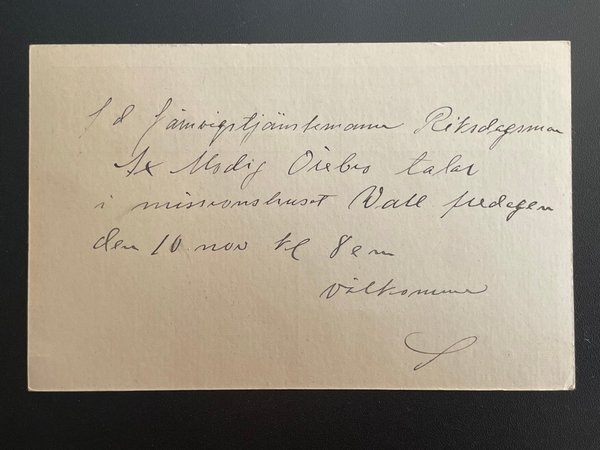 f d Järnvägstjänstemannen Riksdagsman
Ax Modig Örebro talar
i missionshuset Vall fredagen
den 10 nov kl 8 em
välkomna